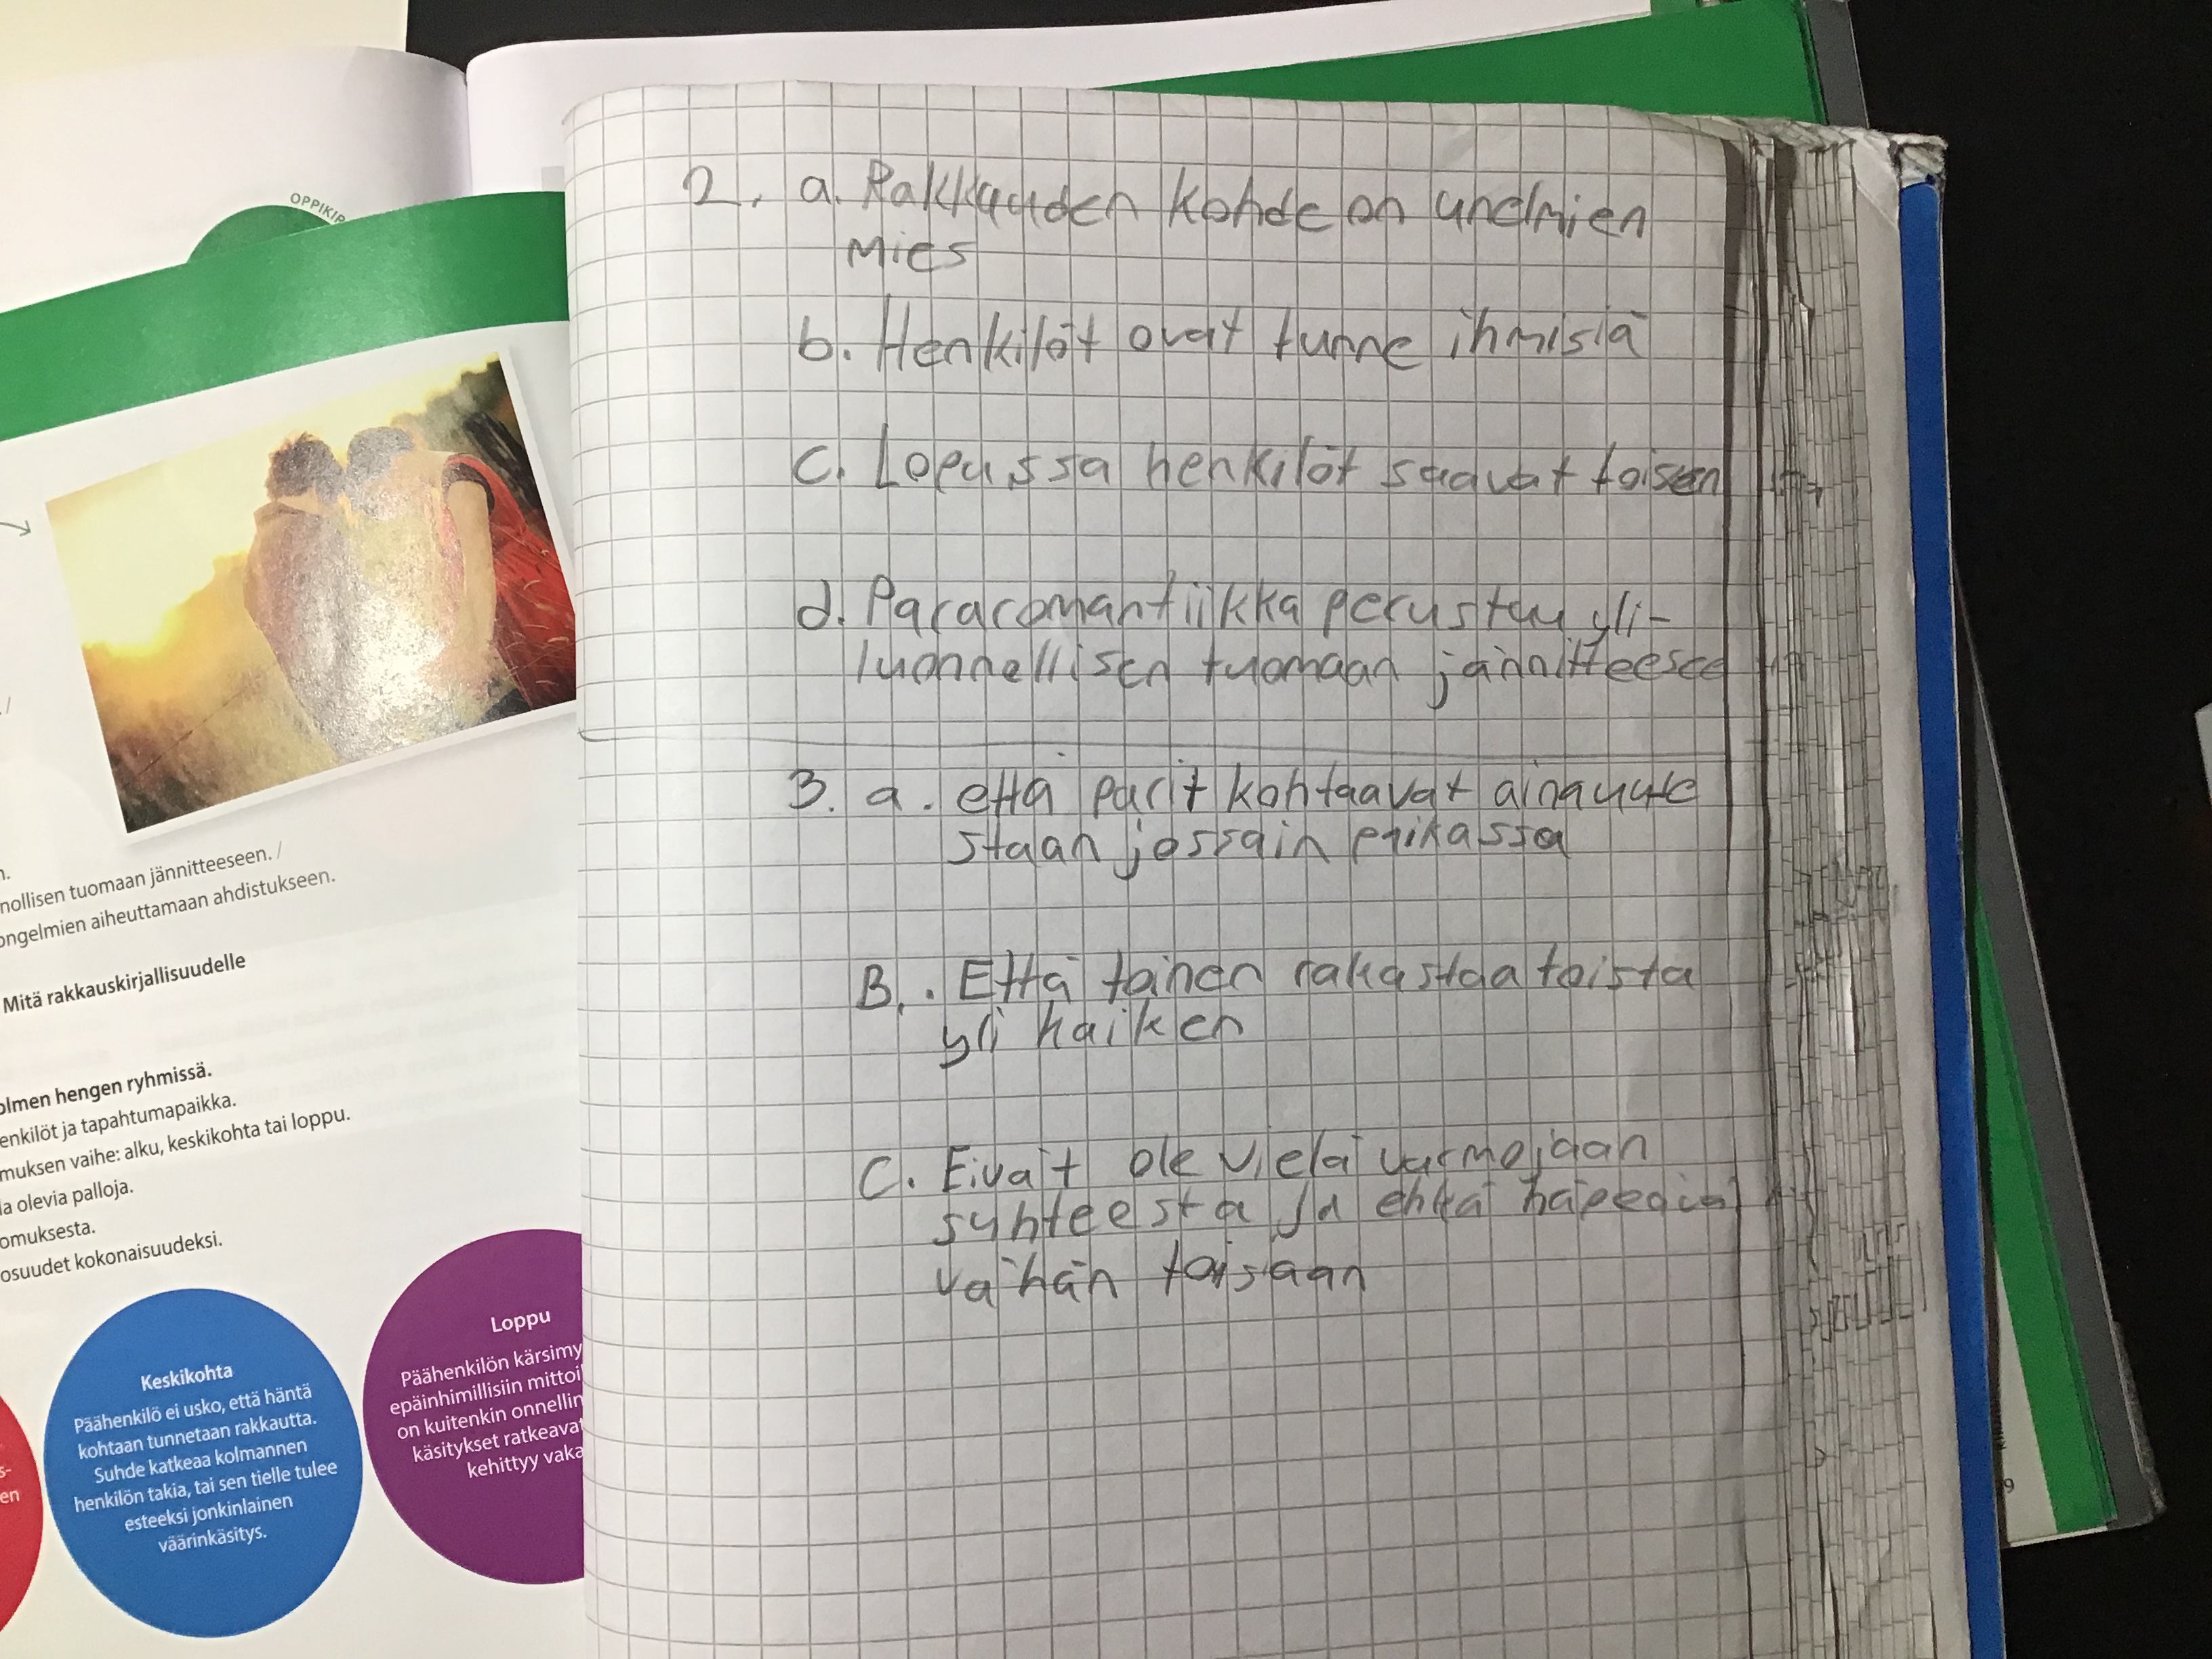 OPPIKIR
n.
nnollisen tuomaan jännitteeseen. /
ongelmien aiheuttamaan ahdistukseen.
Mitä rakkauskirjallisuudelle
olmen hengen ryhmissä.
enkilöt ja tapahtumapaikka.
muksen vaihe: alku, keskikohta tai loppu.
la olevia palloja.
omuksesta.
osuudet kokonaisuudeksi.
s-
en
Keskikohta
Päähenkilö ei usko, että häntä
kohtaan tunnetaan rakkautta.
Suhde katkeaa kolmannen
henkilön takia, tai sen tielle tulee
esteeksi jonkinlainen
väärinkäsitys.
Loppu
Päähenkilön kärsimy
epäinhimillisiin mittoi
on kuitenkin onnellin
käsitykset ratkeavat
kehittyy vaka
2. a. Rakkauden kohde on unelmien
mies
b. Henkilöt ovat tunne ihmisiä
c. Lopussa henkilöt saavat toisen
d. Pararomantiikka perustuu yli-
luonnellisen tuomaan jännitteesee
3. a. että parit kohtaavat
staan jossain
B. Että toinen rakastaa toista
yli kaiken
C. Eivät ole vielä varmojaan
suhteesta Ja ehkä
vähän toisaan
9